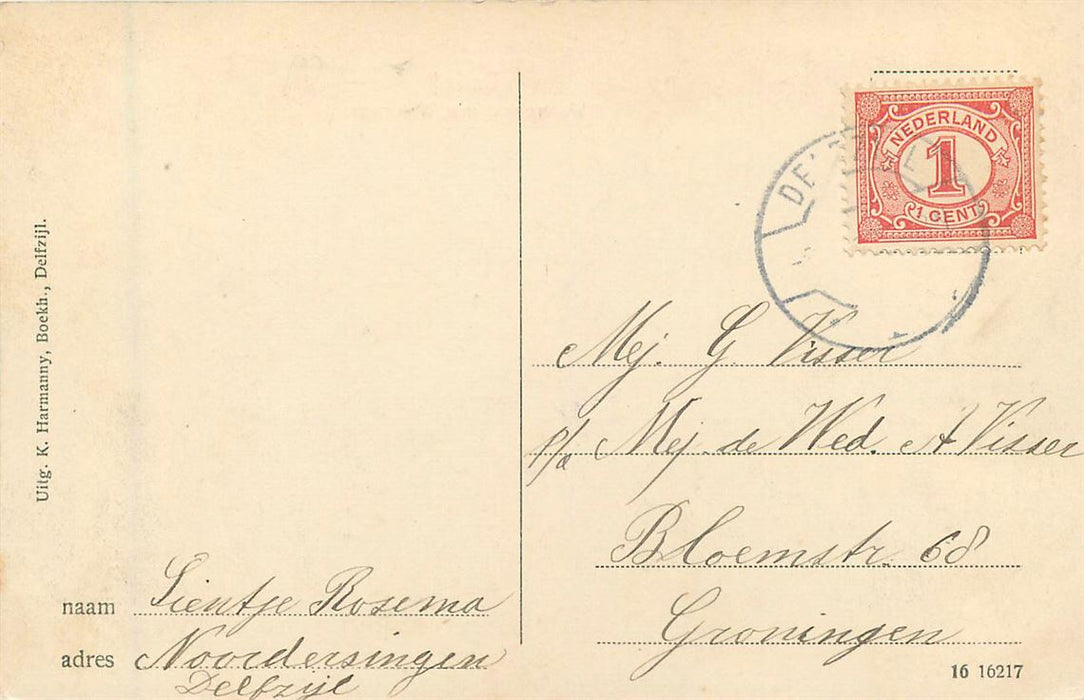 Uitg. K. Harmanny, Boekh., Delfzijl.
NEDERLAND
1
1 CENT
Mej. G. Visser
p/a Mej. de Wed. A Visser
Bloemstr. 68
Groningen
naam Sientje Rosema
adres Noordersingen
Delfzijl
16 16217